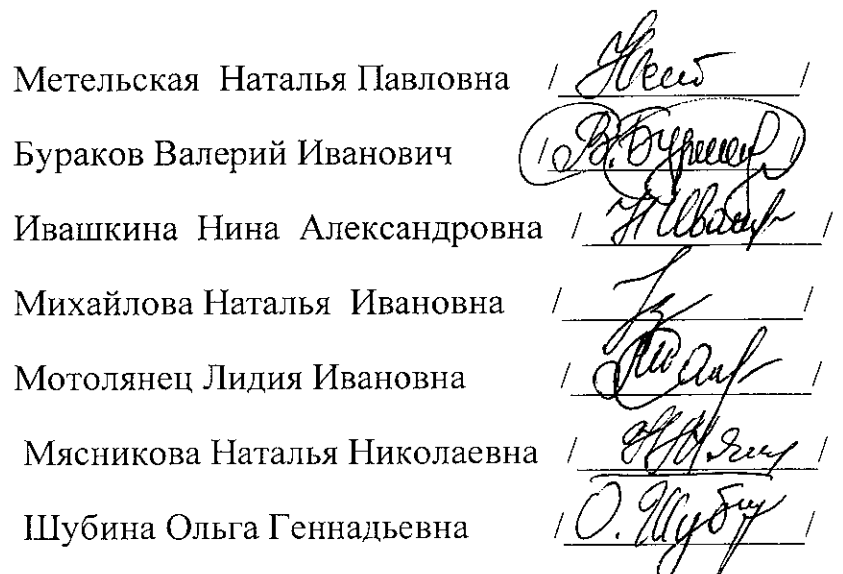 Метельская Наталья Павловна / /
Бураков Валерий Иванович / В. /
Ивашкина Нина Александровна / /
Михайлова Наталья Ивановна / /
Мотолянец Лидия Ивановна / /
Мясникова Наталья Николаевна / /
Шубина Ольга Геннадьевна / О. /